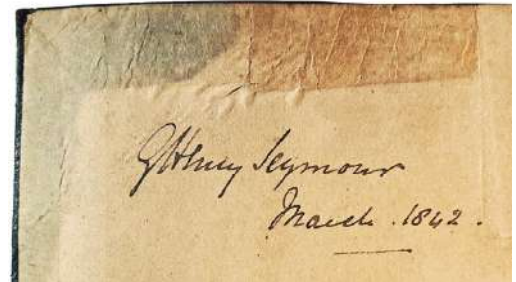 GHenry Seymour
March . 1842 .